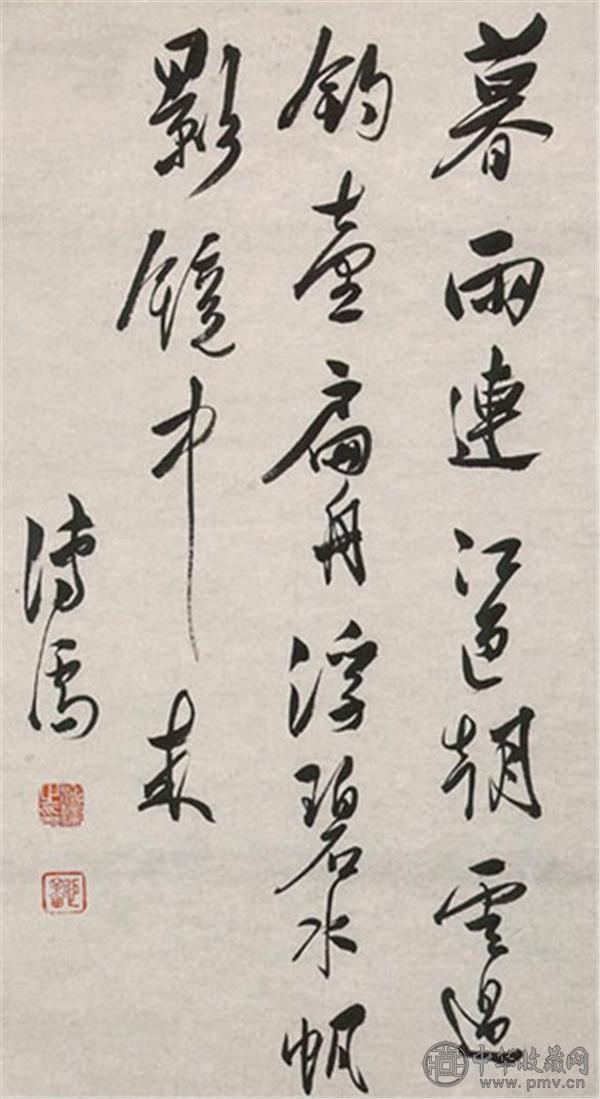 暮雨連江色朝雲過
釣臺扁舟浮碧水帆
影鏡中来
溥儒
中华收藏网
www.pmv.cn